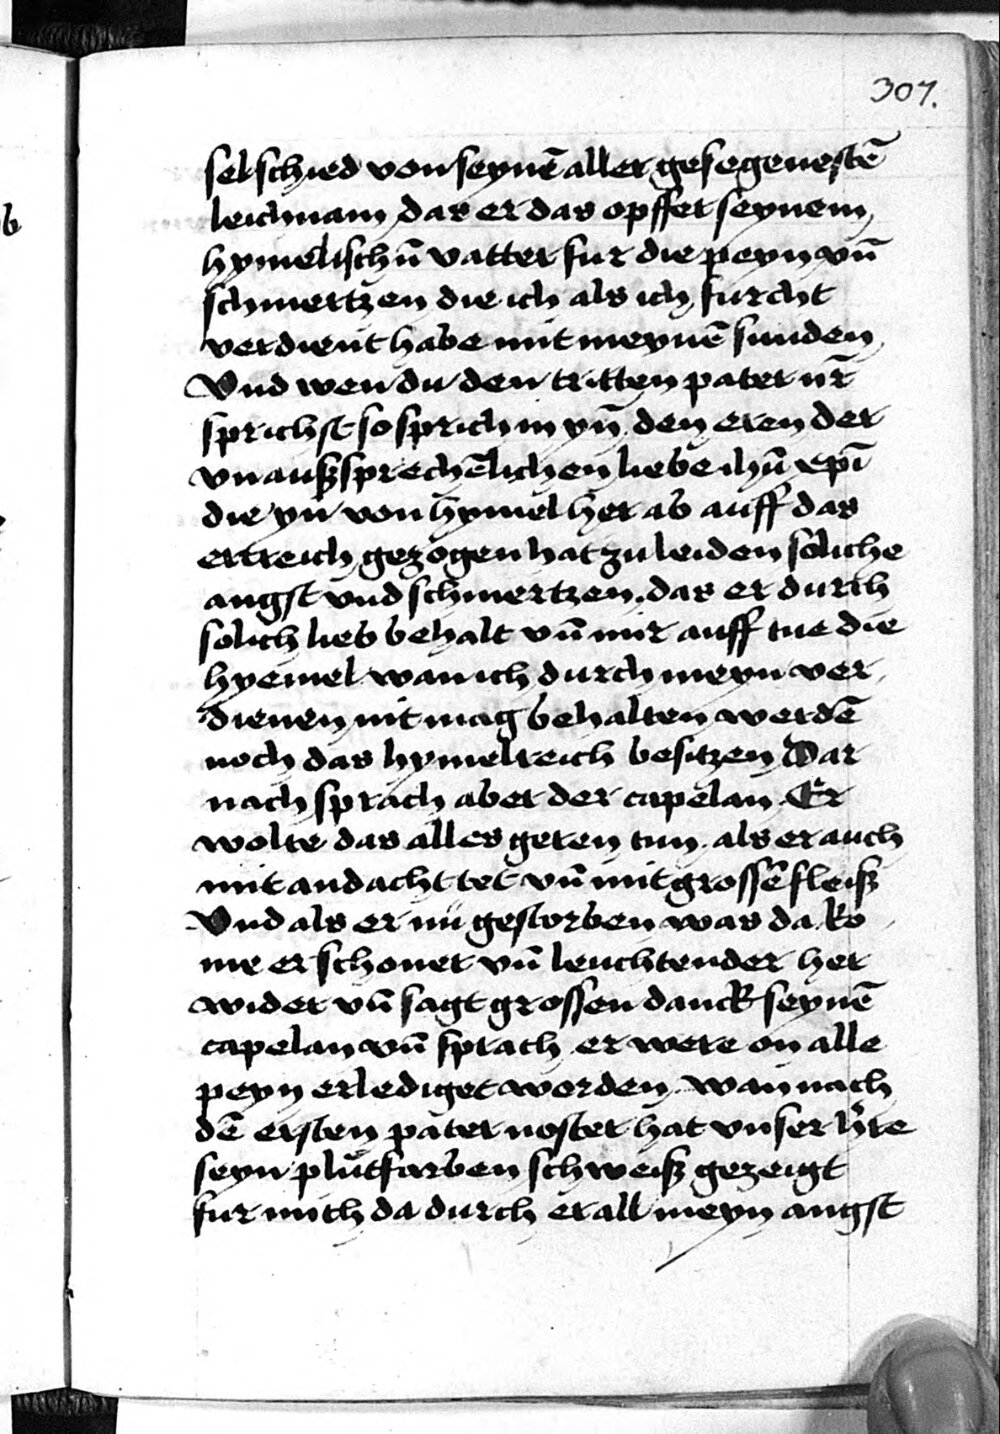 307.
sel schied von seynē aller gesegenestē
leichnam das er das opffer seynem
hymelischn̄ vatter fur die peyn vn̄
schmertzen die ich als ich furcht
verdient habe mit meynē sunden
Vnd wen du den tritten pater nr̄
sprichst so sprich in yn̄ den eren der
vnaußsprechēlichen liebe ihū xpī
die yn von hymel her ab auff das
ertreich gezogen hat zu leiden soliche
angst vnd schmertzen. das er durch
solich lieb behalt vn̄ mir auff tue die
hyemel wan ich durch meyn ver
dienen nit mag behalten werdē
noch das hymelreich besitzen Dar
nach sprach aber der capelan Er
wolte das alles geren tun. als er auch
mit andacht tet vn̄ mit grossē fleiß
Vnd als er nu gestorben was da ko
me er schoner vn̄ leuchtender her
wider vn̄ sagt grossen danck seynē
capelan vn̄ sprach er were on alle
peyn erlediget worden wan nach
dē ersten pater noster hat vnser h're
seyn plutfarben schweiß gezeigt
fur mich da durch er all meyn angst
b